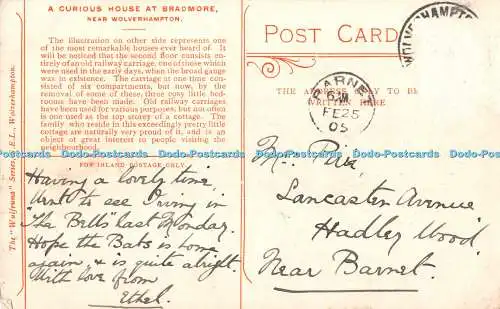 A CURIOUS HOUSE AT BRADMORE,
NEAR WOLVERHAMPTON.
The illustration on other side represents one
of the most remarkable houses ever heard of. It
will be noticed that the second floor consists entirely
of an old railway carriage; one of those which
were used in the early days, when the broad gauge
was in existence. The carriage at one time consisted
of six compartments, but now, by the
removal of some of these, three cosy little bedrooms
have been made. Old railway carriages
have been used for various purposes, but not often
is one used as the top storey of a cottage. The
family who reside in this exceedingly pretty little
cottage are naturally very proud of it, and is an
object of great interest to people visiting the
neighbourhood.
FOR INLAND POSTAGE ONLY.
The "Wulfruna" Series. E.L., Wolverhampton.
Having a lovely time,
Went to see Irving in
"The Bells" last Monday.
Hope the Bats is home
again & is quite alright.
With love from
Ethel.
POST CARD
WOLVERHAMPTO
BARNE
6 PM
FE 25
05
THE ADDRESS ONLY TO BE
WRITTEN HERE
Lancaster Avenue
Hadley Wood
Near Barnet.
www.Modern-Postcards.com